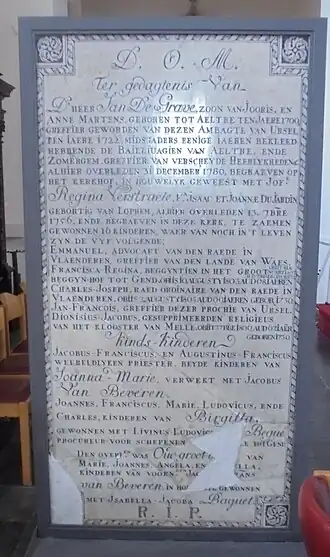 D. O. M.
Ter gedagtenis Van
D'HEER Jan De Grave, ZOON VAN JOORIS, EN
ANNE MARTENS, GEBOREN TOT AELTRE TEN JAERE 1700.
GREFFIER GEWORDEN VAN DEZEN AMBAGTE VAN URSEL
TEN JAERE 1722. MIDSGADERS EENIGE JAEREN BEKLEED
HEBBENDE DE BAILLIAGIEN VAN AELTRE, ENDE
ZOMERGEM, GREFFIER VAN VERSCHEYDE HEERLYKHEDEN,
ALHIER OVERLEDEN 31 DECEMBER 1780, BEGRAEVEN OP
HET KERKHOF, IN HOUWELYK GEWEEST MET JOFW
Regina Verstraete, ISAAC ET JOANNE DUJARDIN
GEBORTIG VAN LOPHEM, ALHIER OVERLEDEN 13. 7BRE
1756, ENDE BEGRAEVEN IN DEZE KERK, TE ZAEMEN
GEWONNEN 16 KINDEREN, WAER VAN NOCH IN'T LEVEN
ZYN DE VYF VOLGENDE:
EMMANUEL, ADVOCAET VAN DEN RAEDE IN
VLAENDEREN, GREFFIER VAN DEN LANDE VAN WAES,
FRANCISCA-REGINA, BEGGYNTIEN IN HET GROOT
BEGGYNHOF TOT GEND,
CHARLES-JOSEPH, RAED ORDINAIRE VAN DEN RAEDE IN
VLAENDEREN,
JAN-FRANCOIS, GREFFIER DEZER PROCHIE VAN URSEL.
DIONISIUS-JACOBUS, GESUPPRIMEERDEN RELIGIEUS
VAN HET KLOOSTER VAN MELLE,
Kinds-Kinderen
JACOBUS-FRANCISCUS, EN AUGUSTINUS-FRANCISCUS
WEERELDLYKEN PRIESTER, BEYDE KINDEREN VAN
Joanna-Marie, VERWEKT MET JACOBUS
Van Beveren.
JOANNES, FRANCISCUS, MARIE, LUDOVICUS, ENDE
CHARLES, KINDEREN VAN Birgitta,
GEWONNEN MET LIVINUS LUDOVIC
PROCUREUR VOOR SCHEPENEN
DEN Oud-groot VAN
MARIE, JOANNES, ANGELA, EN
KINDEREN VAN
van Beveren, IN GEWONNEN
MET ISABELLA-JACOBA Baguet
R. I. P.